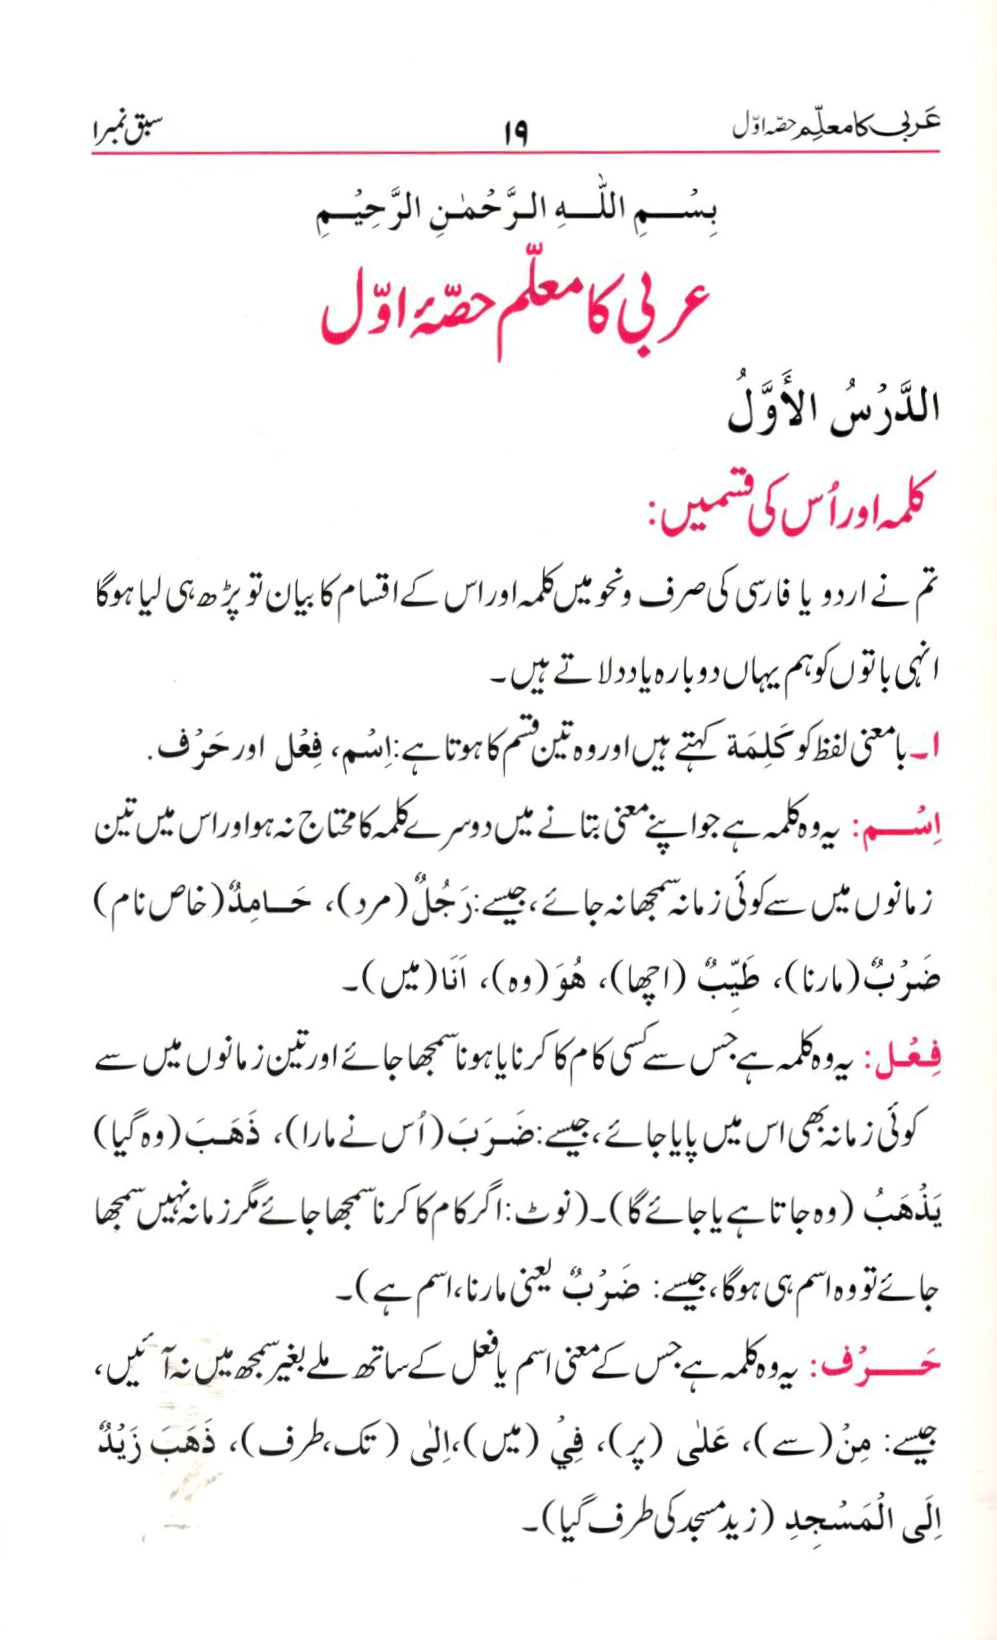 عَربی کا معلّم حصّہ اوّل ۱۹ سبق نمبر۱
بِسْمِ اللّٰهِ الرَّحْمٰنِ الرَّحِيْمِ
عربی کا معلّم حصّۂ اوّل
الدَّرْسُ الأَوَّلُ
کلمہ اور اُس کی قسمیں:
تم نے اردو یا فارسی کی صرف ونحو میں کلمہ اور اس کے اقسام کا بیان تو پڑھ ہی لیا ہوگا
انہی باتوں کو ہم یہاں دوبارہ یاد دلاتے ہیں۔
۱۔ بامعنی لفظ کو کَلِمَة کہتے ہیں اور وہ تین قسم کا ہوتا ہے: اِسْم، فِعْل اور حَرْف.
اِسْم: یہ وہ کلمہ ہے جو اپنے معنی بتانے میں دوسرے کلمہ کا محتاج نہ ہو اور اس میں تین
زمانوں میں سے کوئی زمانہ سمجھا نہ جائے، جیسے: رَجُلٌ (مرد)، حَامِدٌ (خاص نام)
ضَرْبٌ (مارنا)، طَيِّبٌ (اچھا)، هُوَ (وہ)، اَنَا (میں)۔
فِعْل: یہ وہ کلمہ ہے جس سے کسی کام کا کرنا یا ہونا سمجھا جائے اور تین زمانوں میں سے
کوئی زمانہ بھی اس میں پایا جائے، جیسے: ضَرَبَ (اُس نے مارا)، ذَهَبَ (وہ گیا)
يَذْهَبُ (وہ جاتا ہے یا جائے گا)۔ (نوٹ: اگر کام کا کرنا سمجھا جائے مگر زمانہ نہیں سمجھا
جائے تو وہ اسم ہی ہوگا، جیسے: ضَرْبٌ یعنی مارنا، اسم ہے)۔
حَرْف: یہ وہ کلمہ ہے جس کے معنی اسم یا فعل کے ساتھ ملے بغیر سمجھ میں نہ آئیں،
جیسے: مِنْ (سے)، عَلٰی (پر)، فِيْ (میں)، اِلٰی (تک، طرف)، ذَهَبَ زَيْدٌ
اِلَی الْمَسْجِدِ (زید مسجد کی طرف گیا)۔